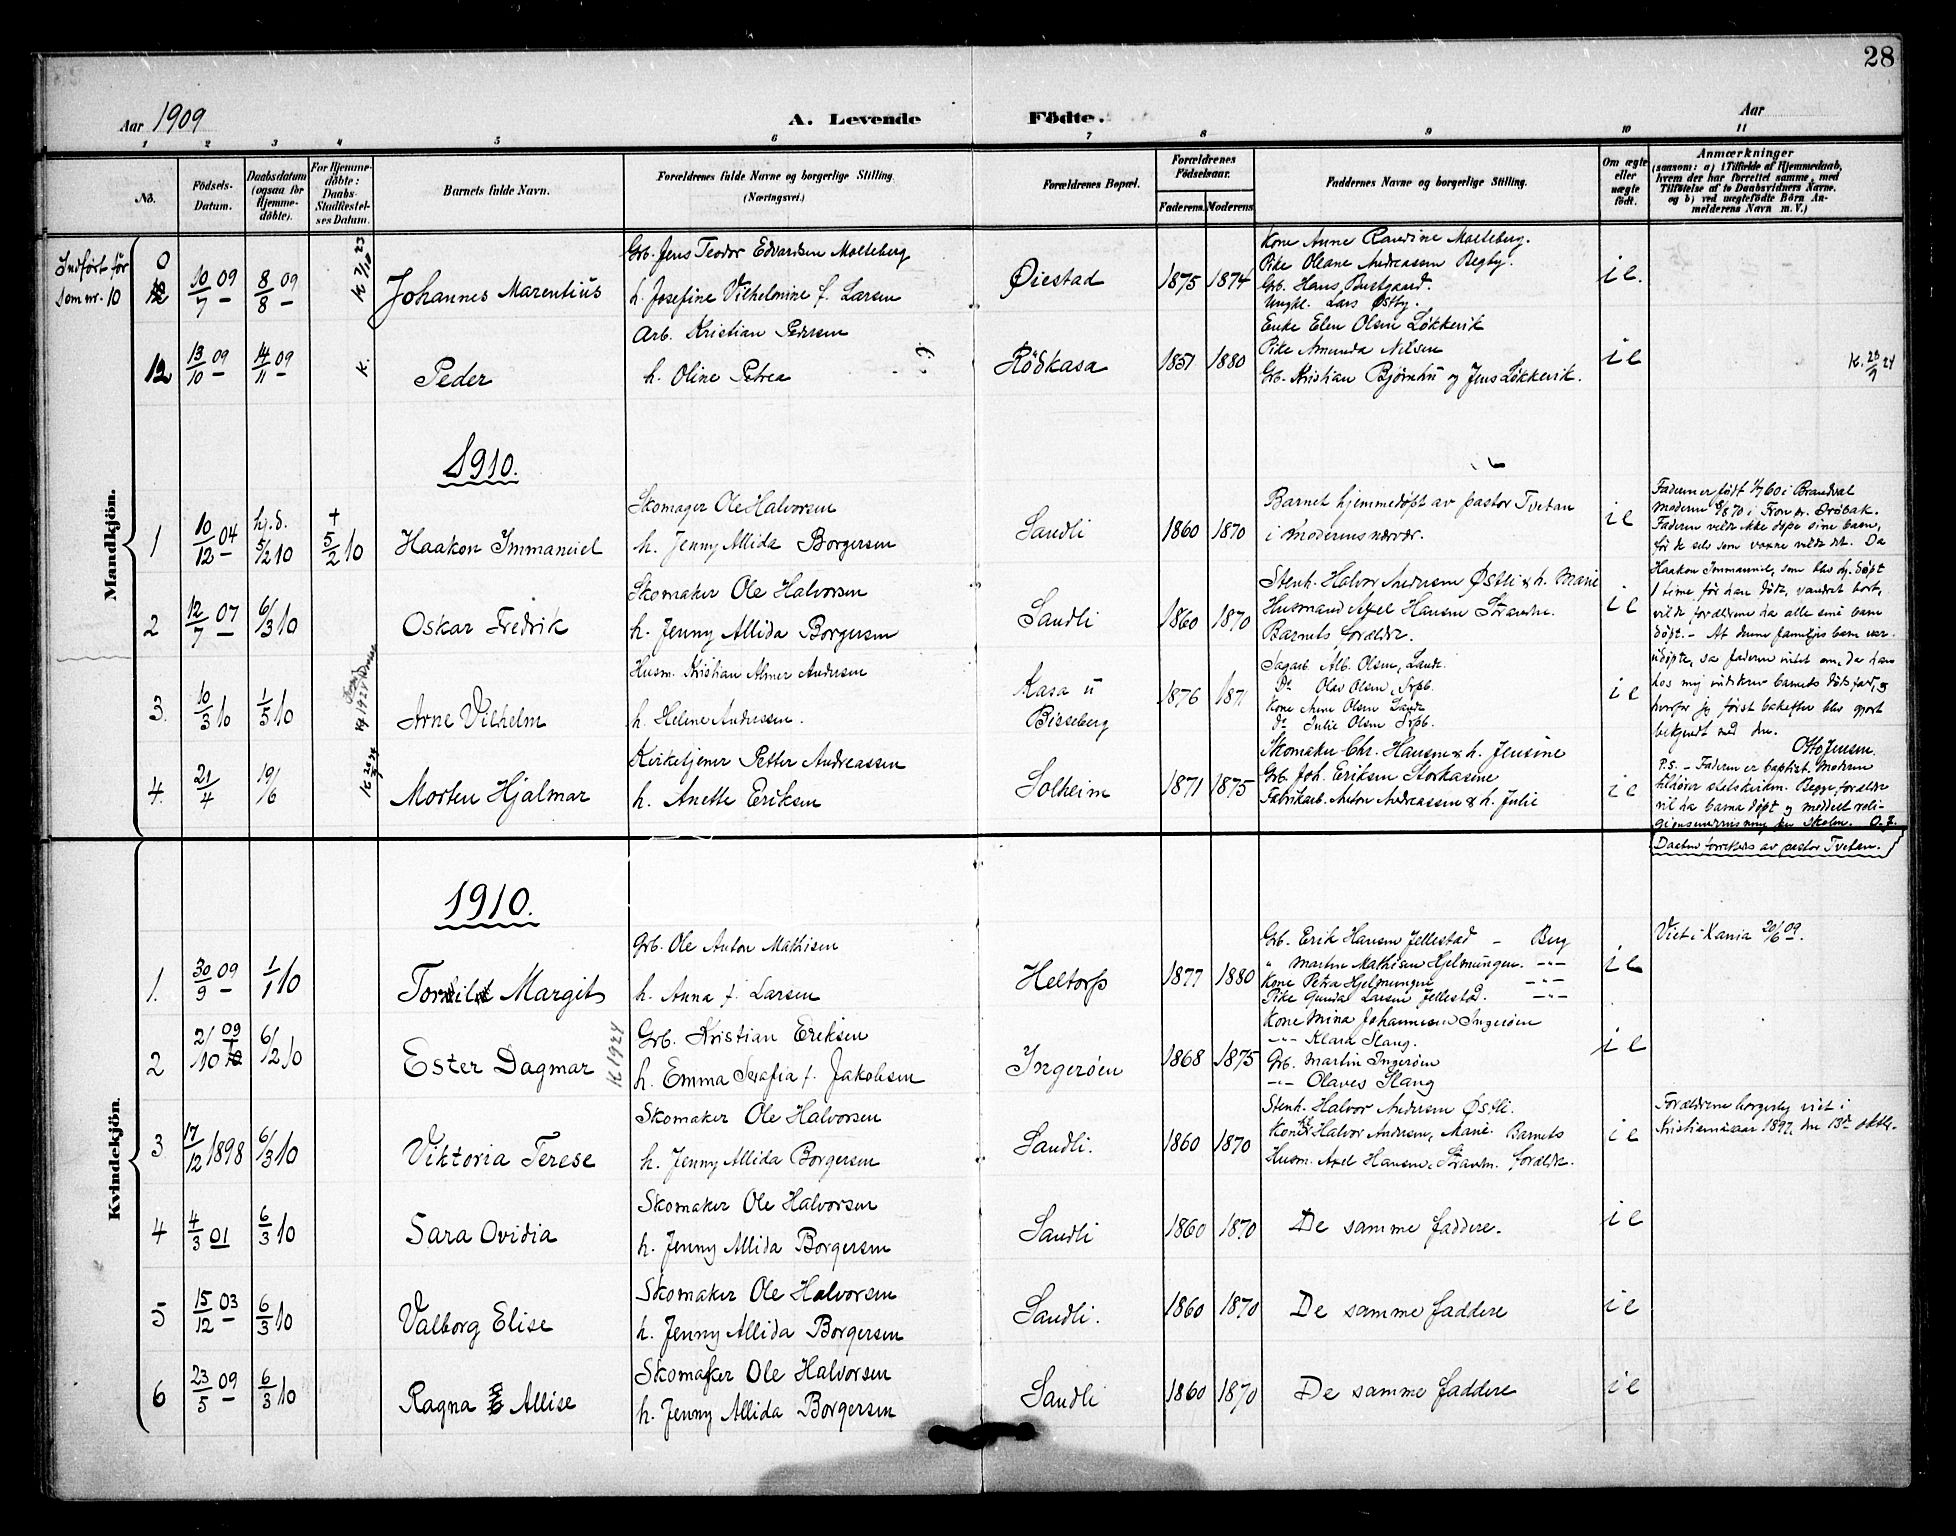 28
Aar 1909
A. Levende Födte.
Aar
1 2 3 4 5 6 7 8 9 10 11
No.
Födsels-Datum.
Daabsdatum (ogsaa for Hjemme-döbte).
For Hjemme-döbte: Daabs Stadfæstel-ses Datum.
Barnets fulde Navn.
Forældrenes fulde Navne og borgerlige Stilling.
(Næringsvei.)
Forældrenes Bopæl.
Forældrenes Födselsaar.
Faderens. Moderens.
Faddernes Navne og borgerlige Stilling.
Om ægte eller uægte födt.
Anmærkninger
(saasom: a) i Tilfælde af Hjemmedaab,
hvem der har forrettet samme, med
Tilföielse af to Daabsvidners Navne.
og b) ved uægtefödte Börn An-
melderens Navn m. V.)
Mandkjön.
Indført før
som nr. 10
10/7 09 8/8 09
Johannes Marentius
Grb. Jens Teodor Edvardsen Molteberg
h. Josefine Vilhelmine f. Larsen
Øiestad
1875 1874
Kone Anne Randine Molteberg.
Pike Oleane Andreassen Begby.
Grb. Hans Bustgaard.
Ungkl. Lars Østby.
i e.
12
13/10 09 14/11 09
K.
Peder
Arb. Kristian Pedersen
h. Oline Petrea
Rödkasa
1851 1880
Enke Elen Olsen Løkkevik
Pike Amunda Nilsen
Grb. Kristian Bjørnhu og Jens Løkkevik.
i e
1910.
1
10/12 04 hj.d. 5/2 10 + 5/2 10
Haakon Immanuel
Skomager Ole Halvorsen
h. Jenny Allida Borgersen
Sandli
1860 1870
Barnet hjemmedøpt av pastor Tvetan
i moderens nærvær.
i e
Faderen er født 1/7 60 i Brandval
Moderen 9/8 70 i Fron pr. Drøbak.
Faderen vilde ikke døpe sine barn,
før de selv som voxne vilde det. Da
Haakon Immanuel, som blev hj. døpt
1 time før han døde, vandret bort,
vilde forældrene ha alle små barn
døpt. – At denne familjes barn var
udøpte, sa faderen intet om, da han
hos mig utskrev barnets døds fad, og
hvorfor jeg først bakefter blev gjort
bekjendt med det.
Otto Jensen.
P.S. – Faderen er baptist. Moderen
tilhører statskirken. Begge forældre
vil ha barna døpt og meddelt reli-
gionsundervisning på skolen. O.J.
Daaben forrettedes av pastor Tvetan.
2
12/7 07 6/3 10
Oskar Fredrik
Skomaker Ole Halvorsen
h. Jenny Allida Borgersen
Sandli
1860 1870
Stenh. Halvor Andersen Østli & h. Marie
Husmand Axel Hansen Stranden.
Barnets forældre.
i e
3.
10/3 10 1/5 10
Arne Vilhelm
Husm. Kristian Almer Andersen
h. Helene Andersen.
Kasa u
Bisseberg
1876 1871
Sagarb. Alb. Olsen, Lande
Do Olav Olsen, Srpb.
Kone Anne Olsen Lande
Do Julie Olsen Srpb.
i e
4.
21/4 19/6
Morten Hjalmar
Kirketjener Petter Andreassen
h. Anette Eriksen
Solheim
1871 1875
Skomaker Chr. Hansen & h. Jensine
Grb. Joh. Eriksen Storkasene
Fabrikarb. Anton Andreassen & h. Julie
i e
Kvindekjön.
1910.
1.
30/9 09 1/1 10
Margit
Grb. Ole Anton Mathisen
h. Anna f. Larsen
Heltorp
1877 1880
Grb. Erik Hansen Jellestad – Berg
" Martin Mathisen Hjelmungen. –"–
Kone Petra Hjelmungen –"–
Pike Gunda Larsen Jellestad. –"–
i e
Viet i Kania 20/6 09.
2
21/10 09 6/2 10
Ester Dagmar
K 1924
Grb. Kristian Eriksen
h. Emma Serafia f. Jakobsen
Ingerøen
1868 1875
Kone Mina Johannesen Ingerøen
–"– Klara Slang.
Grb. Martin Ingerøen
–"– Olaves Slang
i e
3
17/12 1898 6/3 10
Viktoria Terese
Skomaker Ole Halvorsen
h. Jenny Allida Borgersen
Sandli.
1860 1870
Stenh. Halvor Andersen Østli.
Kone Halvor Andersen, Marie. Barnets
Husm. Axel Hansen, Stranden. forældre.
i e
Forældrene borgerlig viet i
Kristiania aar 1897, den 13de oktbr.
4
4/3 01 6/3 10
Sara Ovidia
Skomaker Ole Halvorsen
h. Jenny Allida Borgersen
Sandli
1860 1870
De samme faddere.
i e
5
15/12 03 6/3 10
Valborg Elise
Skomaker Ole Halvorsen
h. Jenny Allida Borgersen
Sandli.
1860 1870
De samme faddere
i e
6
23/5 09 6/3 10
Ragna Allise
Skomaker Ole Halvorsen
h. Jenny Allida Borgersen
Sandli
1860 1870
De samme faddere
i e